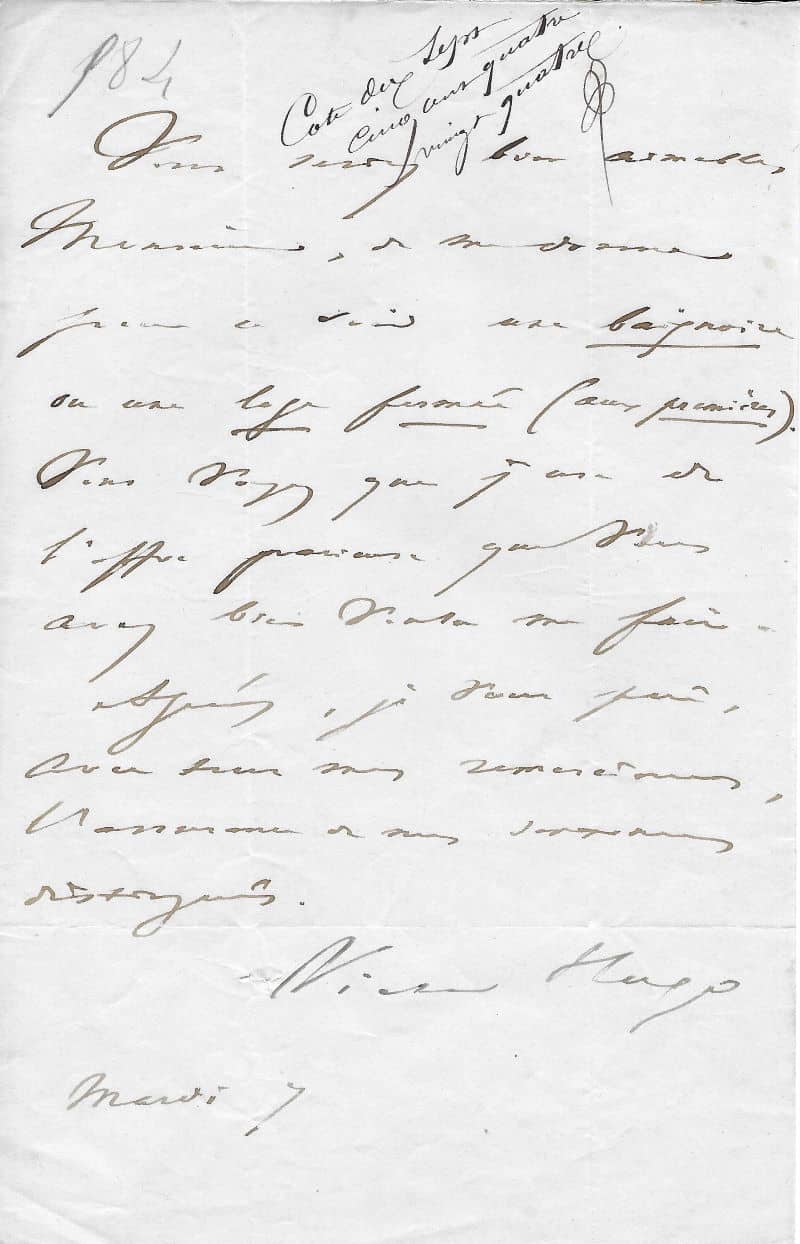 184
Cote dix sept
cinq cent quatre
vingt quatre
Vous seriez bien aimable,
Monsieur, de me donner
pour ce soir une baignoire
ou une loge fermée (aux premières).
Vous voyez que j'use de
l'offre gracieuse que vous
avez bien voulu me faire.
Agréez, je vous prie,
avec tous mes remerciements,
l'assurance de mes sentiments
distingués.
Victor Hugo
Mardi 7